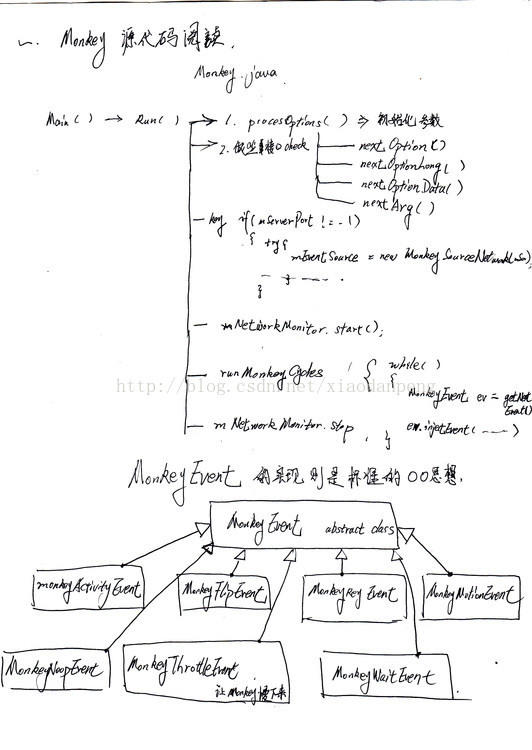 一. Monkey 源代码阅读.
Monkey.java
Main() → Run() → 1. procesOptions() ⇒ 初始化参数
→ 2. 做些事接口check
nextOption()
nextOptionLong()
nextOptionData()
nextArg()
key if(mServerPort != -1)
{ try{
mEventSource = new MonkeySourceNetwork(
}
}
mNetworkMonitor.start();
runMonkeyCycles { while()
{
MonkeyEvent ev = getNext
Event()
mNetworkMonitor.stop , } ev.injetEvent(----)
http://blog.csdn.net/xiaodanpeng
MonkeyEvent 的实现则是标准的OO思想.
MonkeyEvent abstract class
monkeyActivityEvent
MonkeyFlipEvent
MonkeyKey Event
MonkeyMotionEvent
MonkeyNoopEvent
MonkeyThrottleEvent
让Monkey慢下来
MonkeyWaitEvent